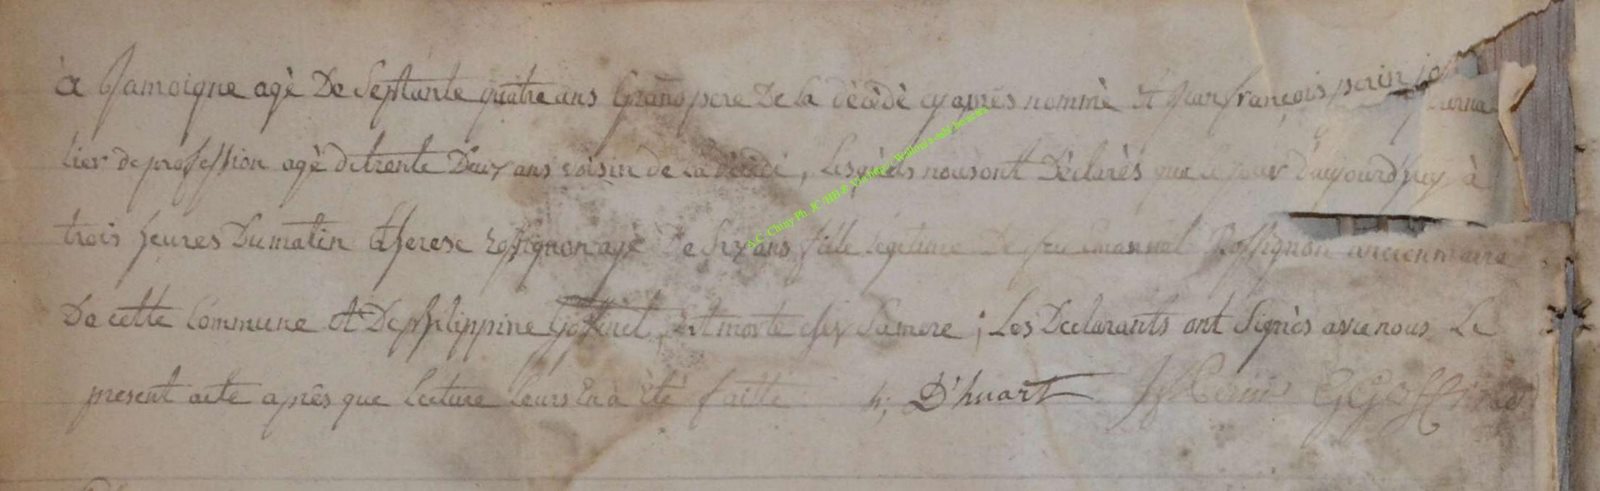 à Jamoigne agè De Septante quatre ans Grand pere De La dècèdè cy après nommè et Jean françois perin jo journa
lier de profession agè de trente Deux ans voisin de La dècèdè, Lesquels nous ont Dèclarès que ce jour D'aujourd'huy, à
trois heures Du matin therese rossignon agè De Six ans fille legitime De feu Emanuel Rossignon ancien maire
De cette Commune et De philippine, Est morte chez Sa mere ; Les Declarants ont Signès avec nous Le
present acte après que Lecture Leurs En à èté faitte h; D'huart JF Perin G
A.C. Chiny Ph. JC